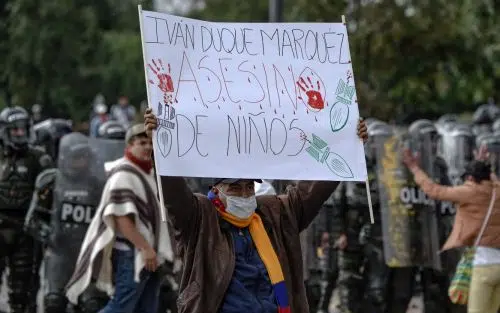 IVAN DUQUE MARQUÉZ
ASESINO
DE NIÑOS
POLI